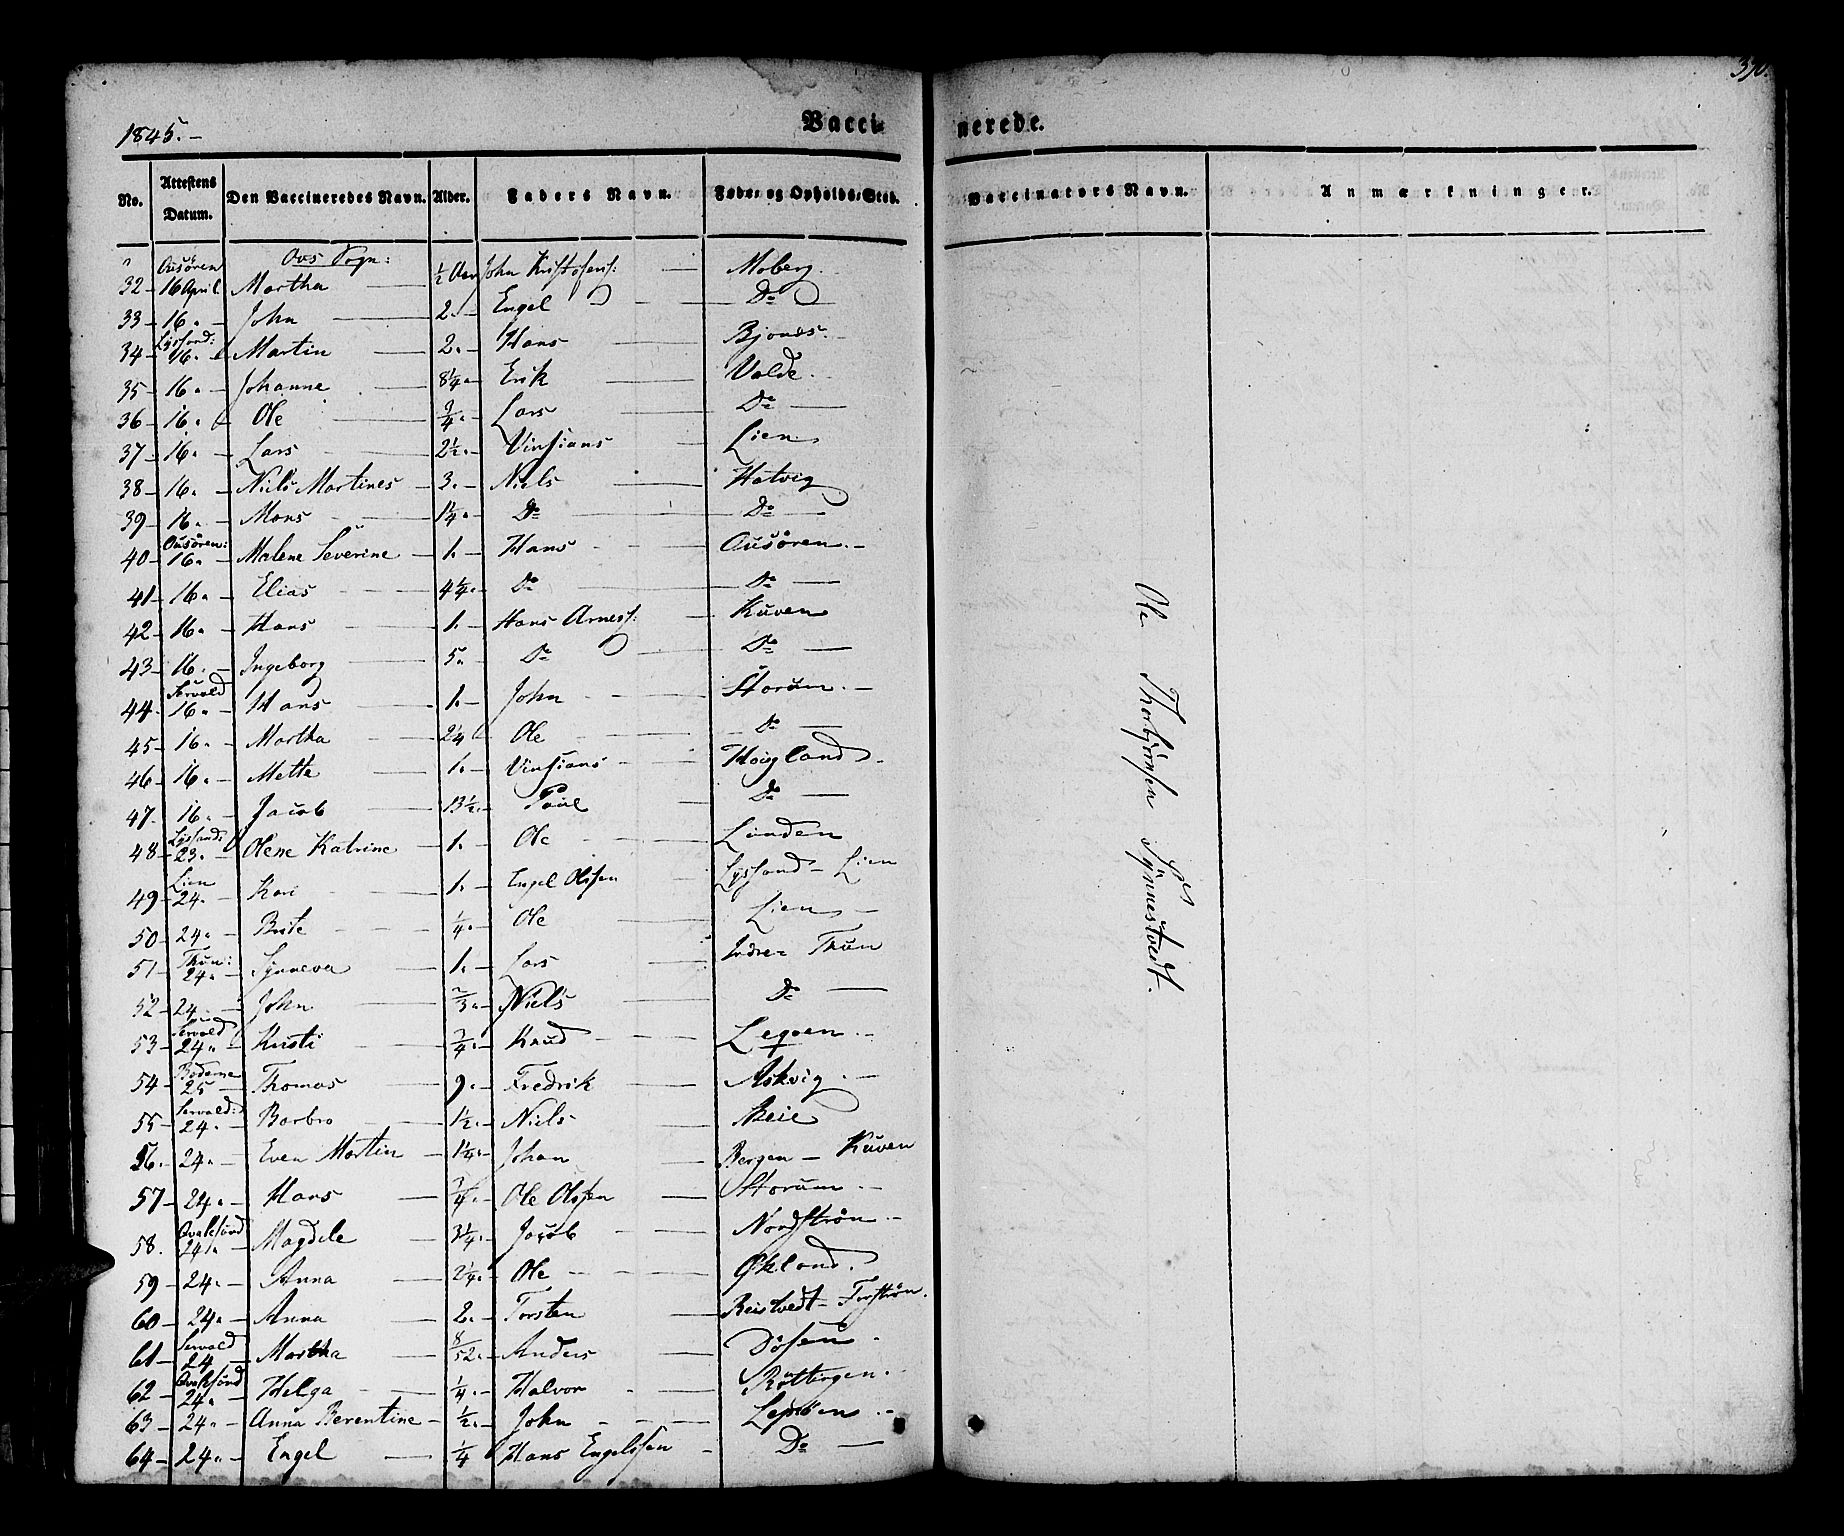 1845.- Vaccinerede. 370.
No. Attestens Datum. Den Vaccineredes Navn. Alder. Faders Navn. Føde- og Opholds-Sted. Vaccinators Navn. Anmærkninger.
Ousören Oos Sogn:
32 - 16 April Martha ½ Aar John Kristofers: Moberg.
33 - 16 " - John 2. - Engel Do
Lysfond:
34 - 16 " Martin 2. - Hans Bjonæs.
35 - 16 " Johanne 8¼ " Erik Valde.
36 - 16 " Ole ¾ " Lars Do
37 - 16 " Lars 2½ " Vinsians Lien
38 - 16 " Niels Martines 3. - Niels Hatvig
39 - 16 " Mons 1¼ " Do Do
Ousören:
40 - 16 " Malene Severine 1. - Hans Ousören. -
41 - 16 " Elias 4¼ " Do Do
42 - 16 " Hans 1. - Hans Arness: Kuven
43 - 16 " Ingeborg 5 " Do Do
Sørvold
44 - 16 " Hans 1. - John Storum. -
45 - 16 " Martha Ole Do
46 - 16 " Mette 1. - Vinsians Hougland -
47 - 16 " Jacob 13½ - Poul Do
Lysfond:
48 - 23 " Olene Katrine 1. - Ole Linden
Lien
49 - 24 " Kari 1. - Engel Olssen Lysfond - Lien
50 - 24 " Brite ¼ " Ole Lien -
Thun:
51 - 24 " Synneva 1. - Lars Indre Thun
52 - 24 " John ⅔ " Niels Do
Sørvold
53 - 24 " Kristi ¾ " Knud Leqven. -
54 - 25 - Thomas 9. - Fredrik Askvig. -
Sørvold:
55 - 24 " Barbro 1½ " Niels Reie
56. - 24 " Even Martin 1¼ " Johan Bergen - Kuven
57 - 24 " Hans ¾ " Ole Olssen Storum. -
Qvalsfond
58. 24 " Magdele 3¼ " Jacob Nordstrøn. -
59 - 24 " Anna 2¼ " Ole Økland.
60 - 24 " Anna 2. - Torsten Reistvedt - Forstrøn.
Sørvold
61 - 24 - Martha 8/52 " Anders Døsen.
Qvalsfond
62 - 24 " Helga ¼ " Halvor Røttingen.
63 - 24 " Anna Berentine ½ " John Lepsøen. -
64 - 24 " Engel ¼ Hans Engelssen Do
Ole Thorbjørnsen Synnestvedt.